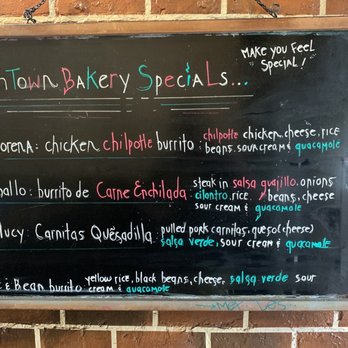 nTown Bakery Specials...
Make you Feel
"Special!"
orena: chicken chilpotle burrito: chilpotle chicken, cheese, rice
beans, sour cream & guacamole
allo: burrito de Carne Enchilada: steak in salsa guajillo, onions
cilantro, rice, beans, cheese
sour cream & guacamole
lucy: Carnitas Quesadilla: pulled pork carnitas, queso (cheese)
salsa verde, sour cream & guacamole
e & Bean burrito yellow rice, black beans, cheese, salsa verde sour
cream & guacamole